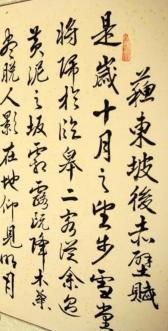 蘇東坡後赤壁賦
是歲十月之望步雪堂
將歸於臨皋二客從余過
黃泥之坂霜露既降木葉
盡脫人影在地仰見明月